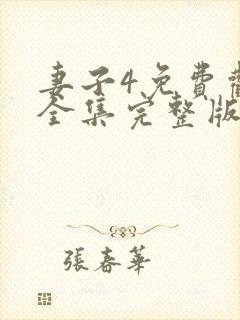 妻子4免費
全集完整版
張春華